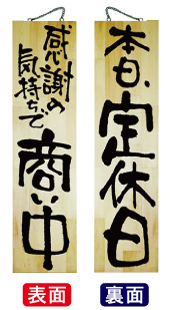 感謝の
気持ちで
商い中
本日、定休日
表面
裏面